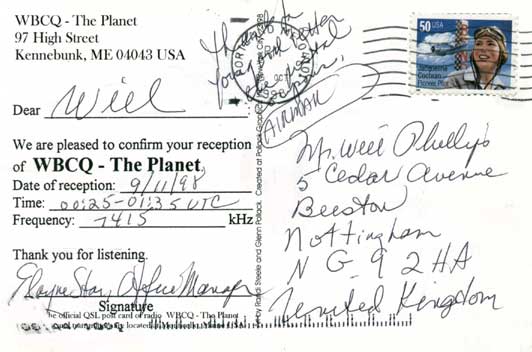 WBCQ - The Planet
97 High Street
Kennebunk, ME 04043 USA
Dear Wiel
We are pleased to confirm your reception
of WBCQ - The Planet.
Date of reception: 9/11/98
Time: 00:25-01:35 UTC
Frequency: 7415 kHz
Thank you for listening.
Elayne Star, Office Manager
Signature
official QSL post card of radio WBCQ - The Planet
located
USA
by Randi Steele and Glenn Pollock. Created at Pollock Graphics
your letter
AIRMAIL
PORTLAND
OCT
50 USA
Jacqueline
Cochran
Pioneer Pilot
Mr. Wiel Phillips
5 Cedar Avenue
Beeston
Nottingham
NG9 2HA
United Kingdom